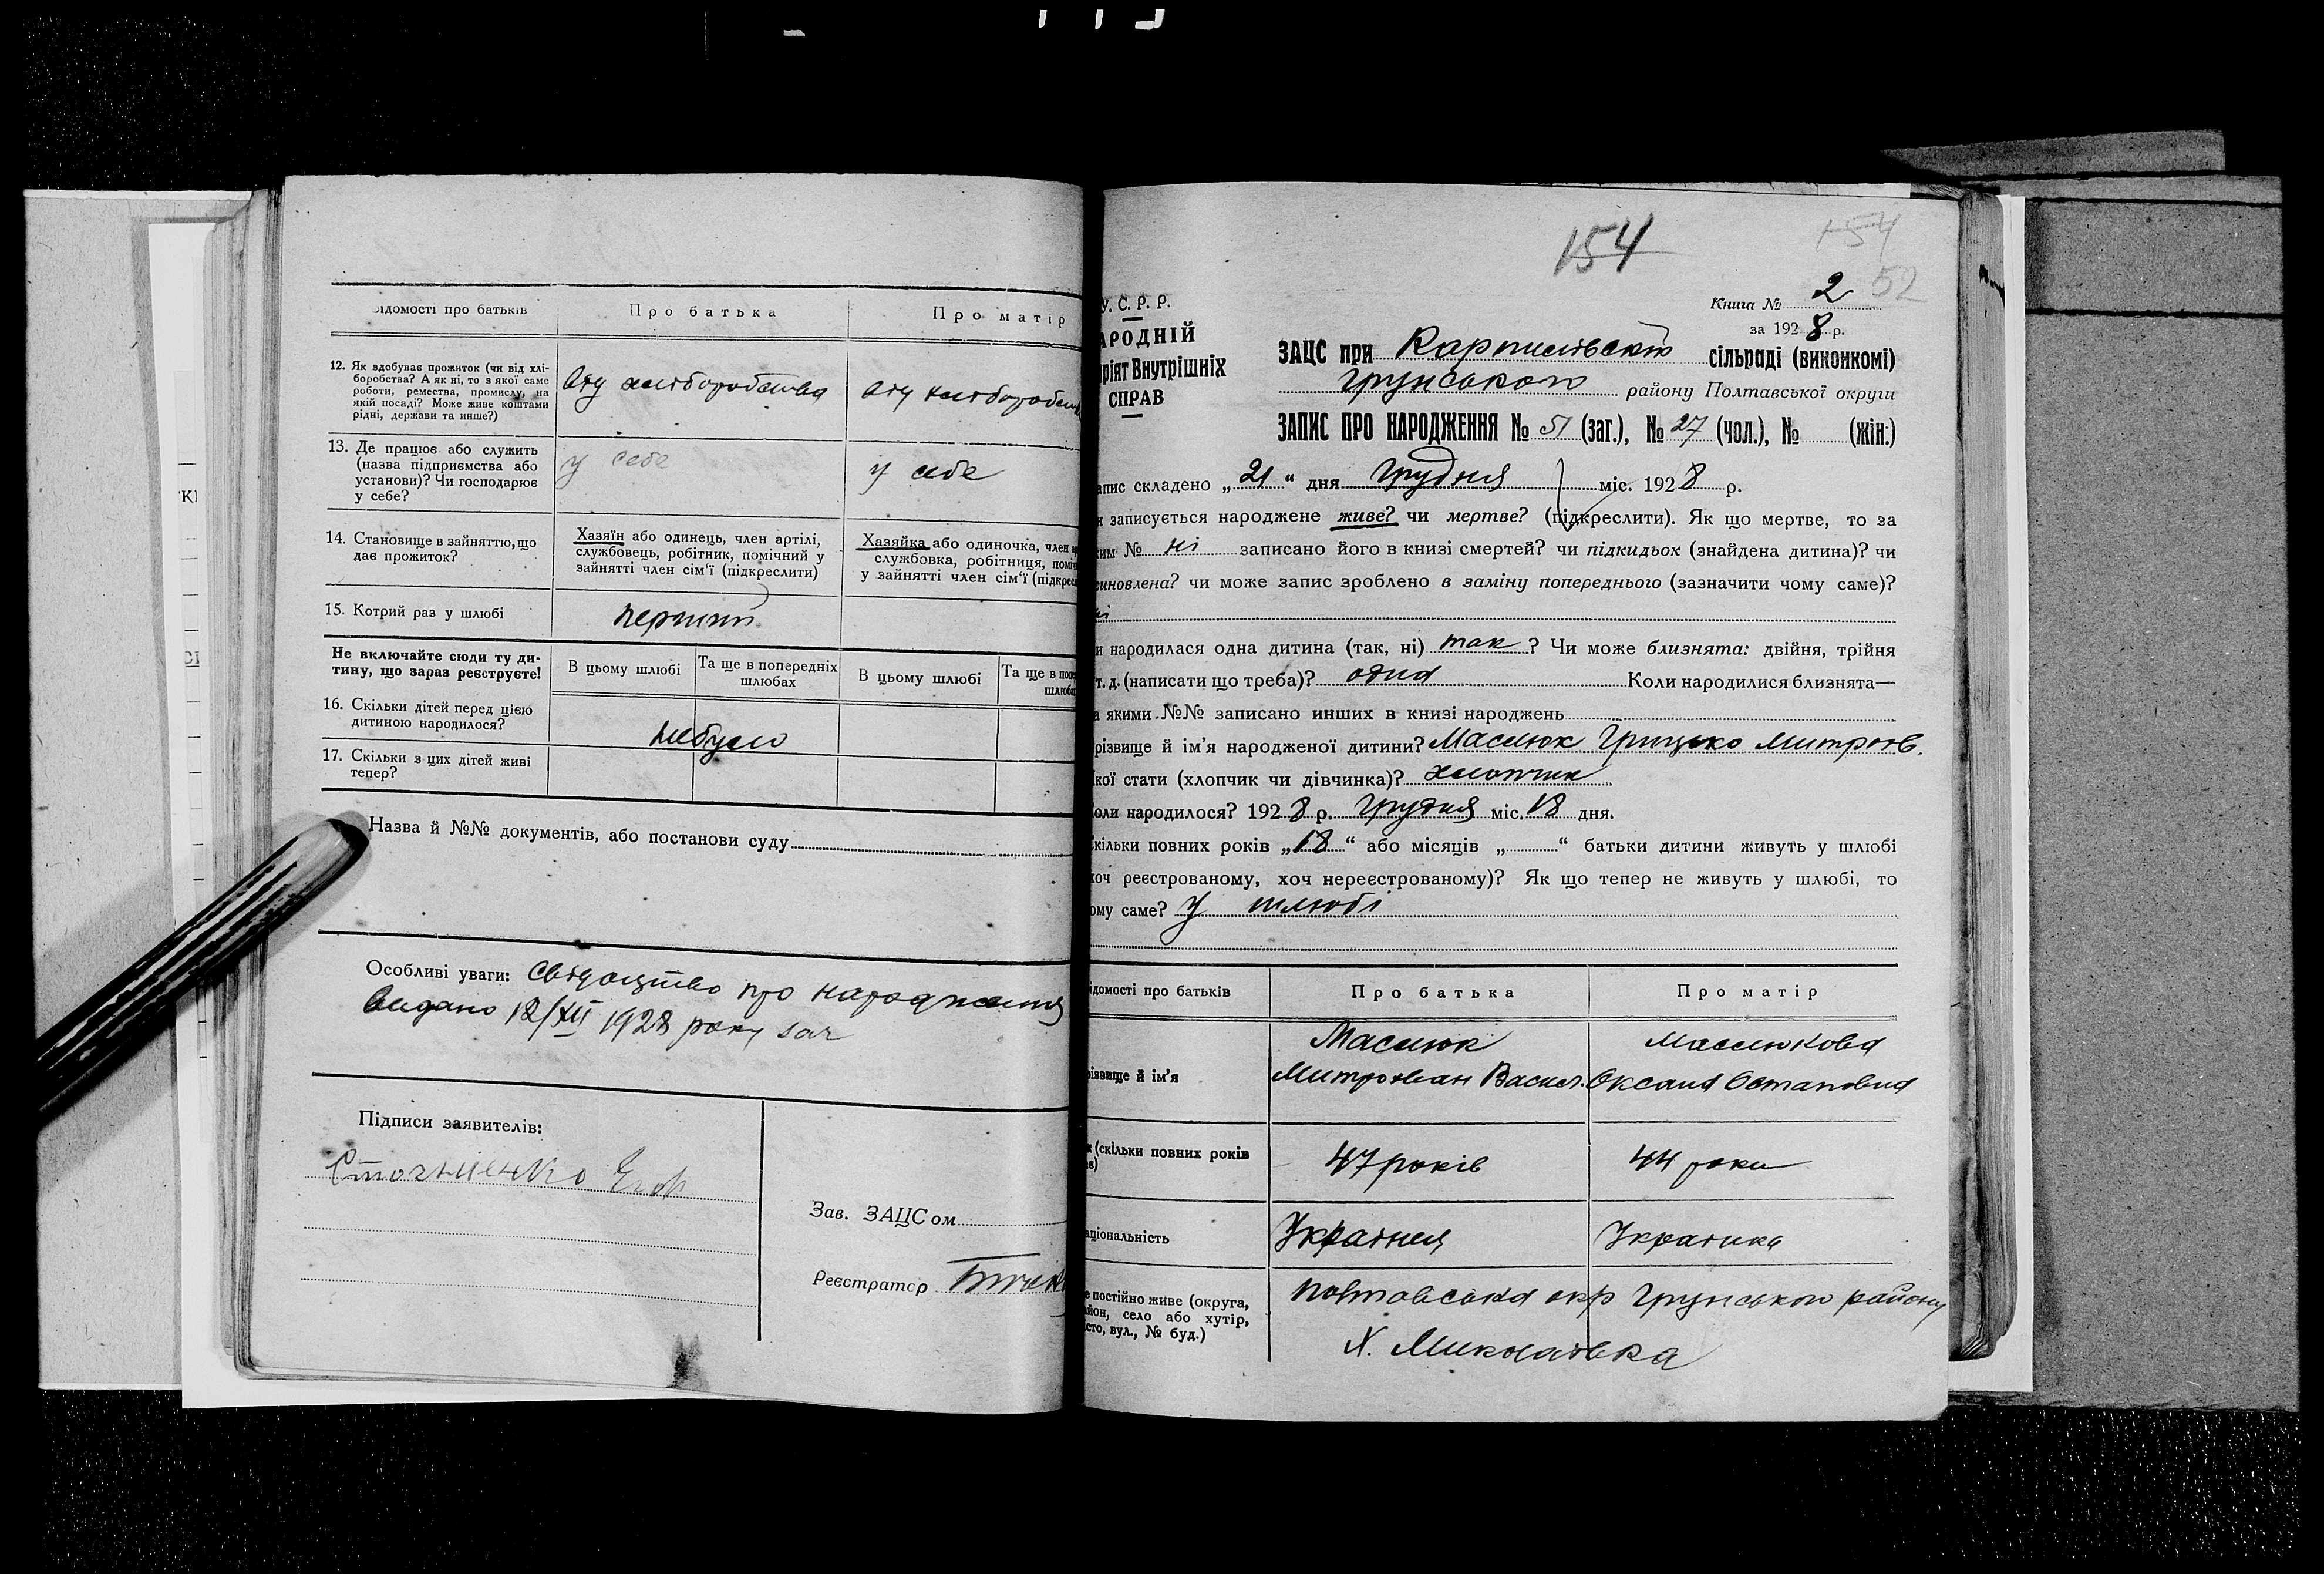 ідомості про батьків
Про батька
Про матір
12. Як здобуває прожиток (чи від хлі-
боробства? А як ні, то з якої саме
роботи, ремества, промислу, на
якій посаді? Може живе коштами
рідні, держави та инше?)
від хліборобства
від хліборобст
13. Де працює або служить
(назва підприємства або
установи)? Чи господарює
у себе?
у себе
у себе
14. Становище в зайняттю, що
дає прожиток?
Хазяїн або одинець, член артілі,
службовець, робітник, помічний у
зайнятті член сім'ї (підкреслити)
Хазяйка або одиночка, член ар
службовка, робітниця, поміч
у зайнятті член сім'ї (підкресл
15. Котрий раз у шлюбі
перший
Не включайте сюди ту ди-
тину, що зараз реєструєте!
В цьому шлюбі
Та ще в попередніх
шлюбах
В цьому шлюбі
Та ще в попе
шлюба
16. Скільки дітей перед цією
дитиною народилося?
небуло
17. Скільки з цих дітей живі
тепер?
Назва й №№ документів, або постанови суду
Особливі уваги: Свідоцтво про народження
видано 18/XII 1928 року за №
Підписи заявителів:
Зав. ЗАЦСом
Реєстратор
154
154
52
У. С. Р. Р.
АРОДНІЙ
ріят Внутрішніх
СПРАВ
Книга № 2
за 1928 р.
ЗАЦС при Карпилівскій сільраді (виконкомі)
Грунського району Полтавської округи
ЗАПИС ПРО НАРОДЖЕННЯ № 51 (заг.), № 27 (чол.), № (жін.)
апис складено „21" дня Грудня міс. 1928 р.
и записується народжене живе? чи мертве? (підкреслити). Як що мертве, то за
ким № ні записано його в книзі смертей? чи підкидьок (знайдена дитина)? чи
синовлена? чи може запис зроблено в заміну попереднього (зазначити чому саме)?
ні
и народилася одна дитина (так, ні) так ? Чи може близнята: двійня, трійня
т. д. (написати що треба)? одна Коли народилися близнята—
а якими №№ записано инших в книзі народжень
різвище й ім'я народженої дитини? Маслюк Грицько Митроф.
кої стати (хлопчик чи дівчинка)? хлопчик
оли народилося? 1928 р. Грудня міс. 18 дня.
кільки повних років „18" або місяців „ " батьки дитини живуть у шлюбі
хоч реєстрованому, хоч нереєстрованому)? Як що тепер не живуть у шлюбі, то
ому саме? У шлюбі
ідомості про батьків
Про батька
Про матір
різвище й ім'я
Маслюк
Митрофан Васил.
Маслюкова
Оксана Остаповна
к (скільки повних років
ів)
47 років
44 роки
аціональність
Українец
Українка
е постійно живе (округа,
айон, село або хутір,
сто, вул., № буд.)
Полтавська окр Грунського району
Х. Миколаївка